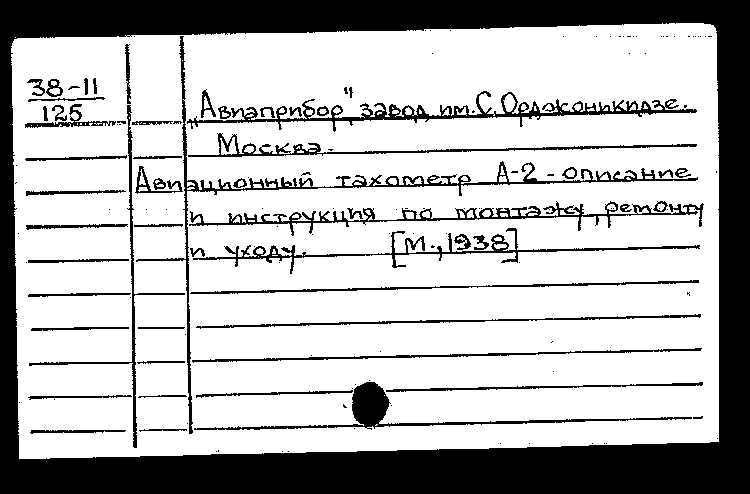 38-11
125
„Авиаприбор", завод им. С. Орджоникидзе.
Москва.
Авиационный тахометр А-2 - описание
и инструкция по монтажу, ремонту
и уходу. [М., 1938]